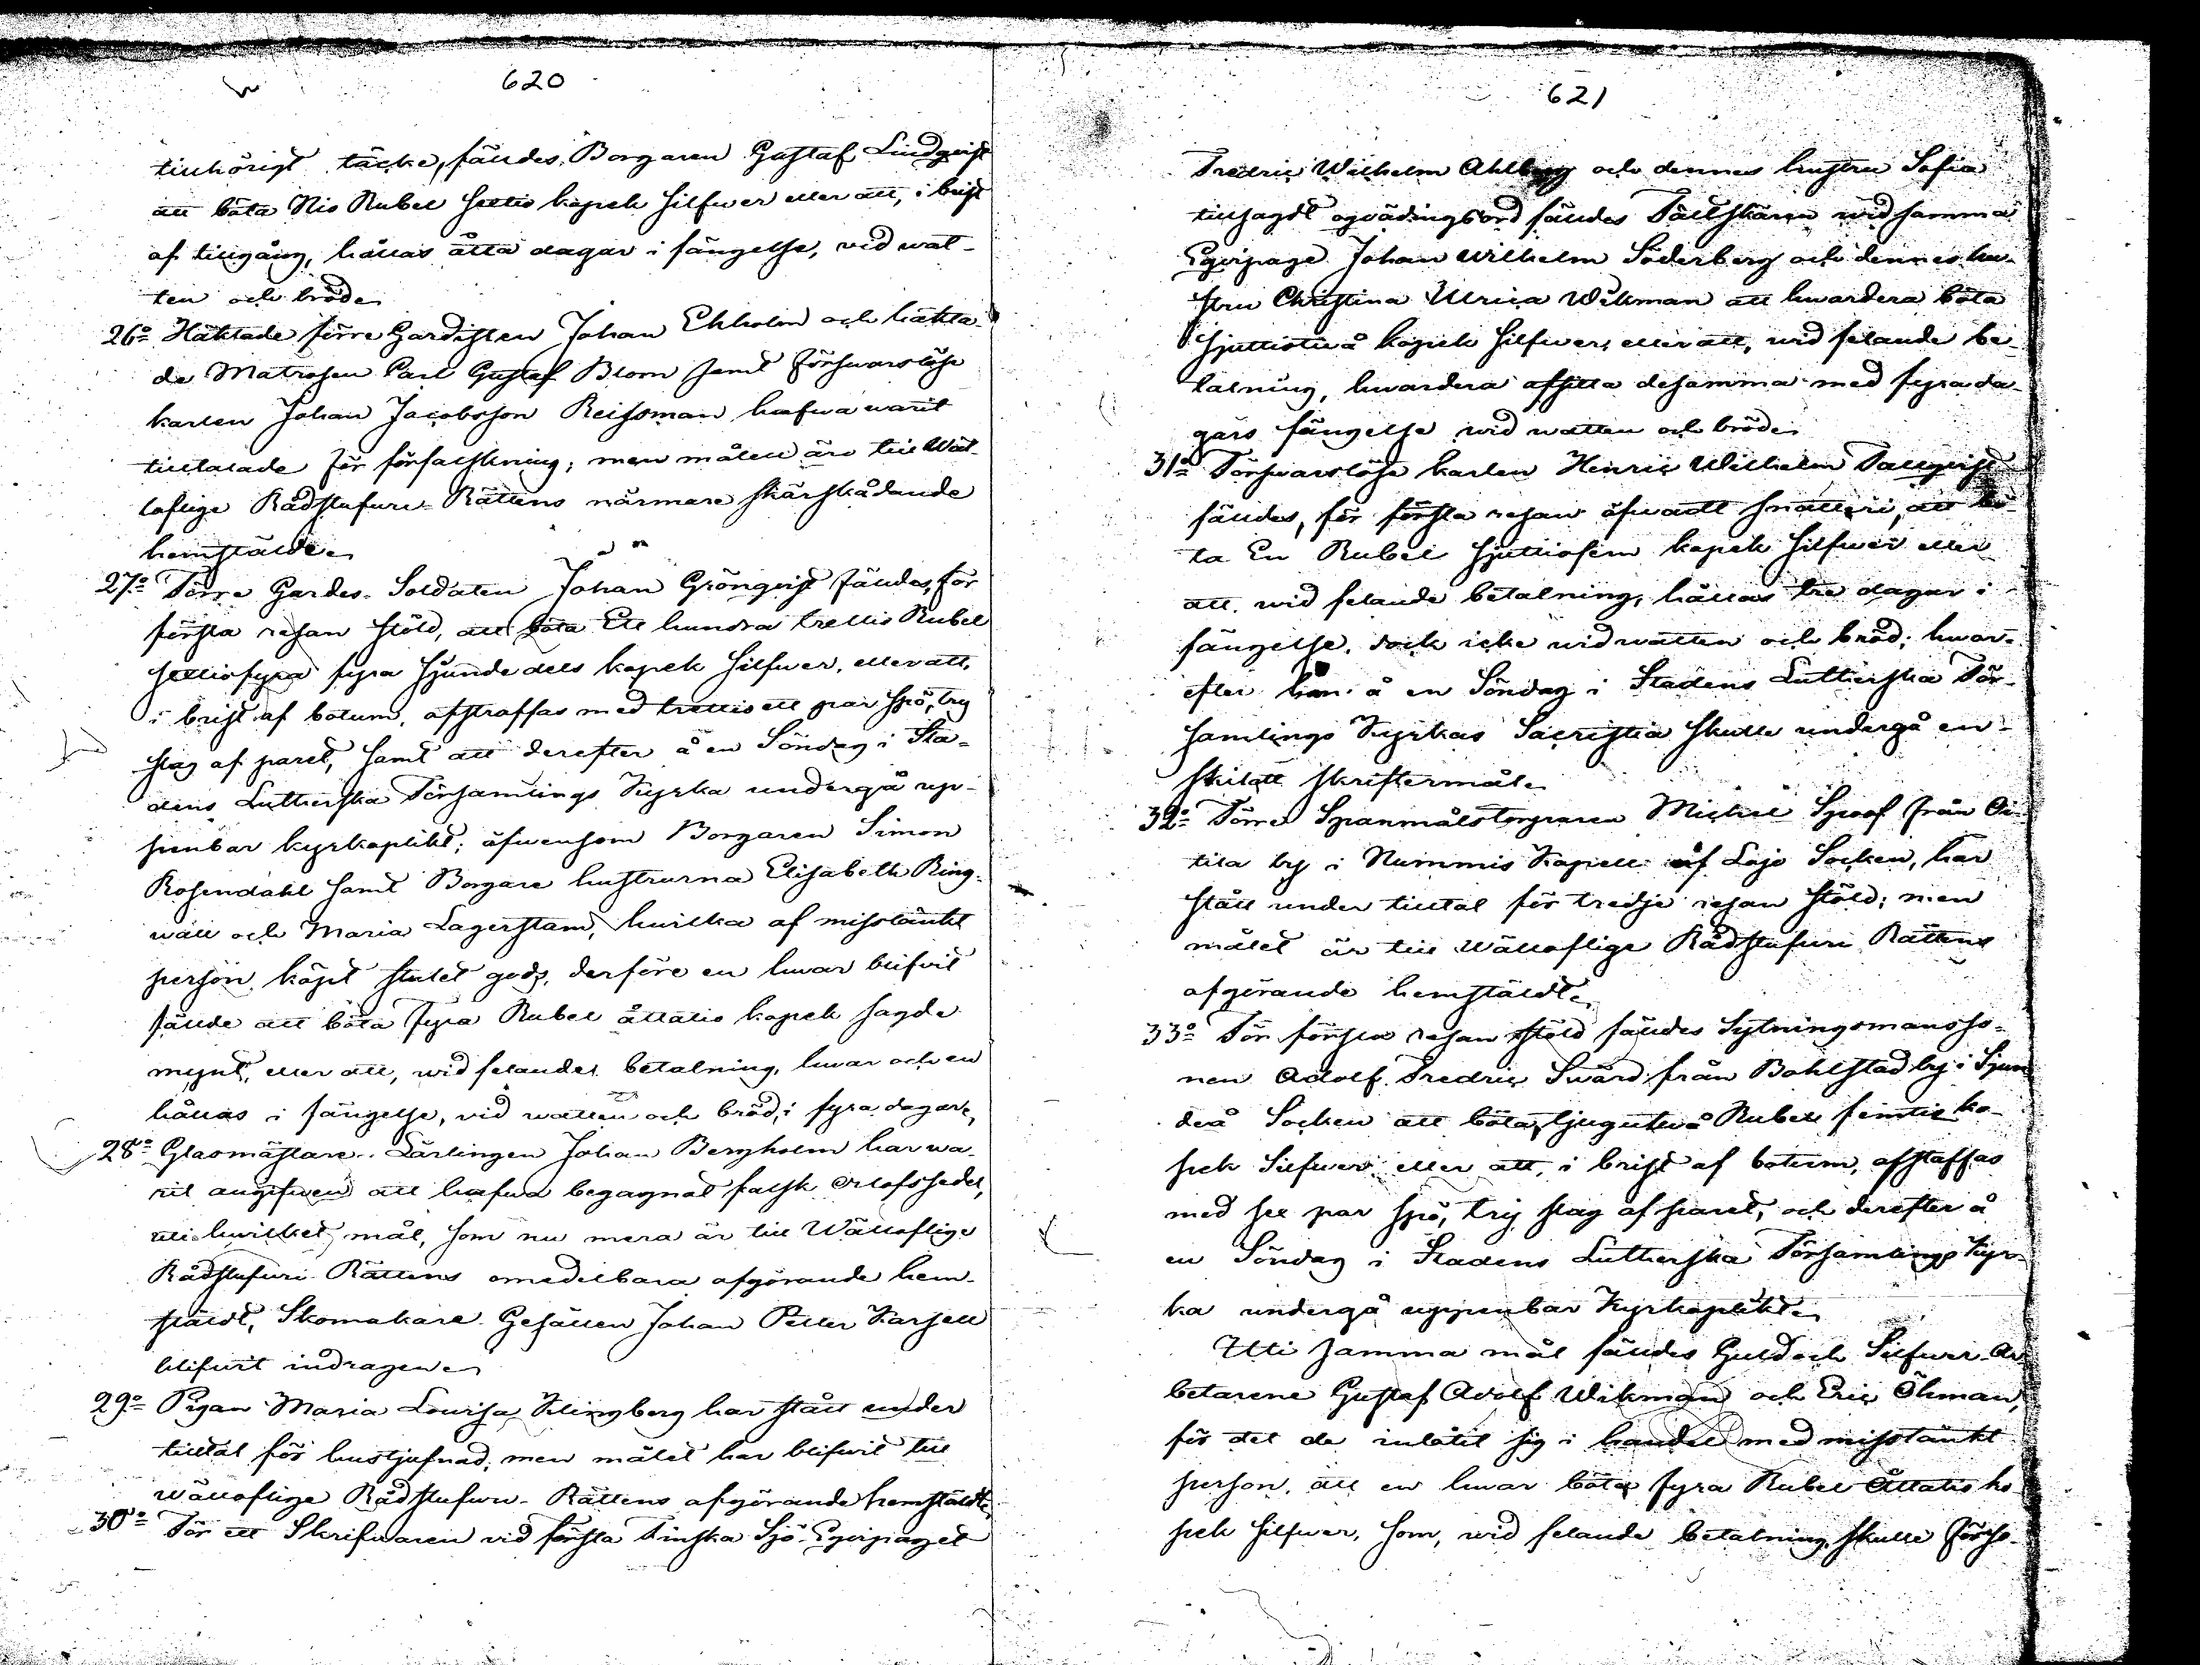 620
tillhörigt täcke, fäldes Borgaren Gustaf Lindqvist
att böta Nio Rubel settio kopek silfwer eller att, i brist
af tillgång, hållas åtta dagar i fängelse, vid wat-
ten och bröd.
26o Häktade förre Gardisten Johan Ekholm och häkta-
de Matrosen Carl Gustaf Blom samt Försvarslöse
karlen Johan Jacobsson Reissman hafwa warit
tilltalade för förfalskning; men målen äro till Wäl-
loflige Rådstufwu-Rättens närmare skärskådande
hemstälde.
27o Förre Gardes-Soldaten Johan Grönqvist fäldes, för
första resan stöld, att böta Ett hundra trettio Rubel
settiofyra fyra sjundedels kopek silfwer, eller att,
i brist af botum, afstraffas med trettioett par spö, try
slag af paret, samt att derefter å en Söndag i Sta-
dens Lutherska Församlings Kyrka undergå up-
penbar kyrkoplikt; äfwensom Borgaren Simon
Rosendahl samt Borgare hustrurna Elisabeth Ring-
wall och Maria Lagerstam, hwilka af misstänkt
person köpt stulet gods, derföre en hwar blifvit
fälde att böta Fyra Rubel åttatio kopek sagde
mynt, eller att, wid felande betalning, hwar och en
hållas i fängelse, vid watten och bröd, i fyra dagar.
28o Glasmästare-Lärlingen Johan Bergholm har wa-
rit angifwen att hafwa begagnat falsk orlofssedel,
uti hwilket mål, som nu mera är till Wälloflige
Rådstufwu-Rättens omedelbara afgörande hem-
stäldt, Skomakare-Gesällen Johan Petter Karsell
blifwit indragen.
29o Pigan Maria Lovisa Klingberg har stått under
tilltal för hustjufnad, men målet har blifwit till
wälloflige Rådstufwu-Rättens afgörande hemstäldt.
30o För ett Skrifwaren vid första Finska Sjö-Eqvipaget
621
Fredric Wilhelm Ahlberg och dennes hustru Sofia
tillsagdt oqvädingsord fäldes Fältskären wid samma
Eqvipage Johan Wilhelm Söderberg och dennes hu-
stru Christina Ulrica Wikman att hwardera böta
Sjuttiotvå kopek silfwer, eller att, wid felande be-
talning, hwardera afsitta desamma med fyra da-
gars fängelse wid watten och bröd.
31o Försvarslöse karlen Henric Wilhelm Tallqvist
fäldes, för första resan öfwadt snatteri, att bö-
ta En Rubel sjuttiofem kopek silfwer eller
att, wid felande betalning, hållas tre dagar i
fängelse, dock icke wid watten och bröd; hwar-
efter han å en Söndag i Stadens Lutherska För-
samlings Kyrkas Sacristia skulle undergå en-
skildt skriftermål.
32o Förre Spanmålstorparen Michel Spoof från Oi-
tila by i Nummis Kapell af Lojo Socken, har
stått under tilltal för tredje resan stöld; men
målet är till Wälloflige Rådstufwu Rättens
afgörande hemstäldt.
33o För första resan stöld fäldes Sytningsmansso-
nen Adolf Fredric Swärd från Bohlstad by i Sjun
deå Socken att böta tjugutvå Rubel femtio ko-
pek Silfwer eller att, i brist af botum, afstaffas
med sex par spö, try slag af paret, och derefter å
en Söndag i Stadens Lutherska Församlings Kyr-
ka undergå uppenbar Kyrkoplikt.
Uti samma mål fäldes Guld och Silfwer-Ar-
betarene Gustaf Adolf Wikman och Eric Öhman,
för det de inlåtit sig i handel med misstänkt
person, att en hwar böta Fyra Rubel Åttatio ko-
pek silfwer, som, wid felande betalning, skulle förso-